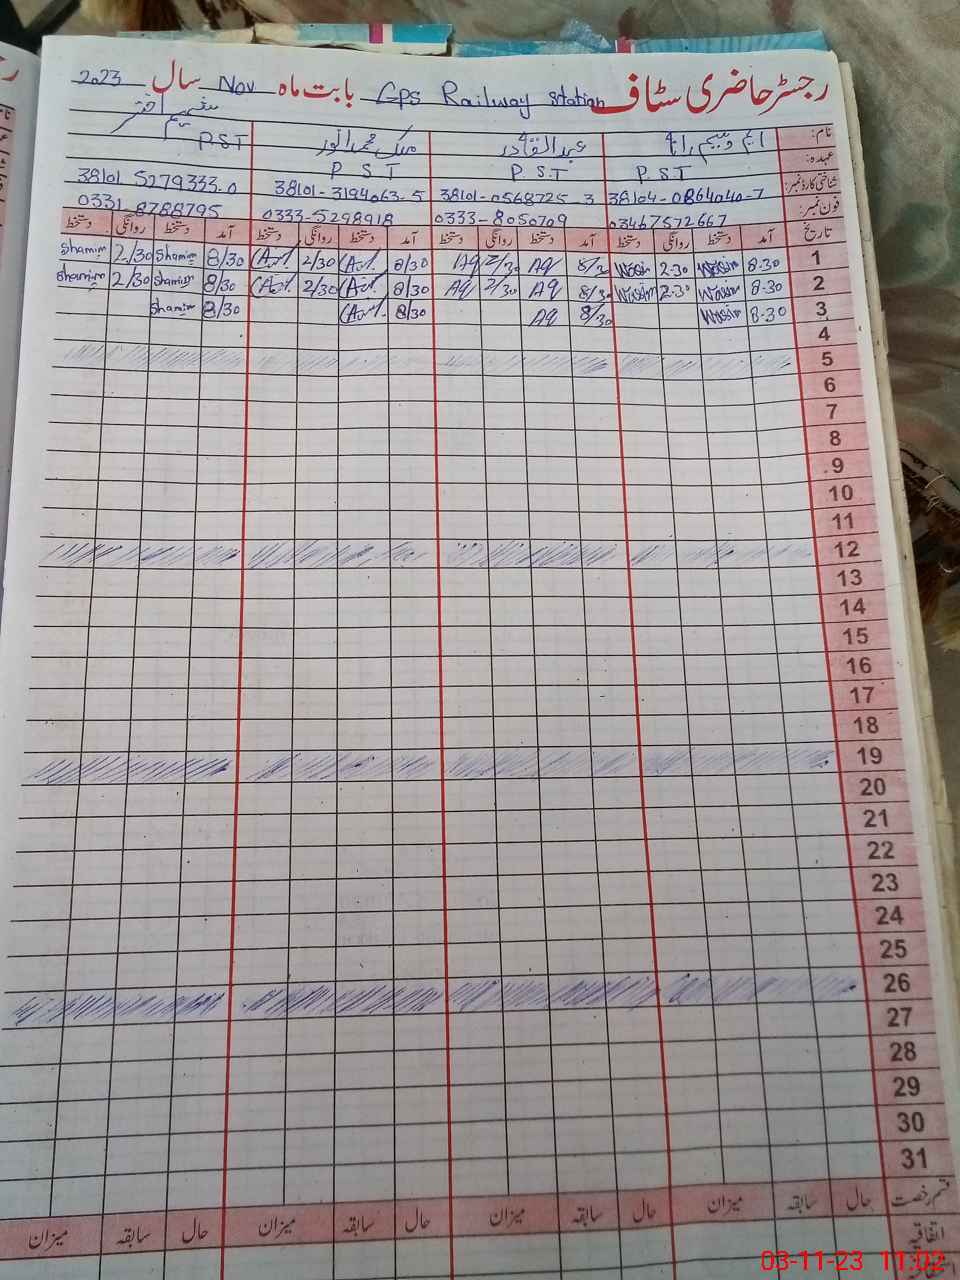 رجسٹر حاضری سٹاف GPS Railway Station بابت ماہ Nov سال 2023
نام: ایم وسیم رانا عبدالقادر ملک محمد انور شمیم اختر
عہدہ: P.S.T P.S.T P.S.T P.S.T
شناختی کارڈ نمبر: 38104-0864040-7 38101-0568725-3 38101-3194063-5 38101 5279333-0
فون نمبر: 03467572667 0333-8050709 0333-5298918 0331 8788795
تاریخ آمد دستخط روانگی دستخط آمد دستخط روانگی دستخط آمد دستخط روانگی دستخط آمد دستخط روانگی دستخط
1 8-30 Wasim 2-30 Wasim 8/30 AQ 2/30 AQ 8/30 2/30 8/30 Shamim 2/30 Shamim
2 8-30 Wasim 2-30 Wasim 8/30 AQ 2/30 AQ 8/30 2/30 8/30 Shamim 2/30 Shamim
3 8-30 Wasim 8/30 AQ 8/30 8/30 Shamim
4
5
6
7
8
9
10
11
12
13
14
15
16
17
18
19
20
21
22
23
24
25
26
27
28
29
30
31
قسم رخصت حال سابقہ میزان حال سابقہ میزان حال سابقہ میزان حال سابقہ میزان
اتفاقیہ
03-11-23 11:02